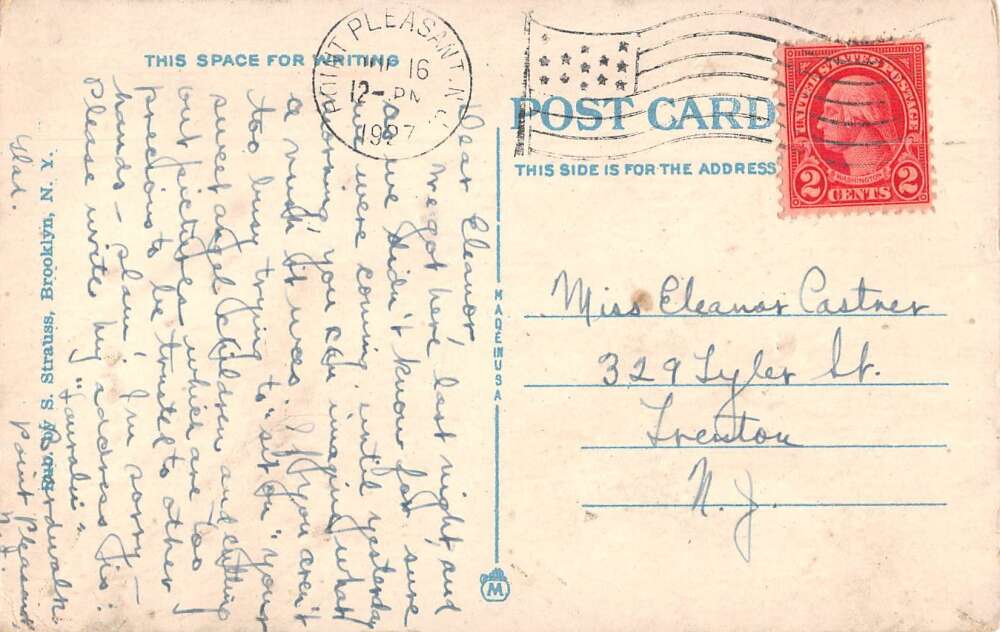 THIS SPACE FOR WRITING
POINT PLEASANT, N.J.
16
12-PM
1927
POST CARD
THIS SIDE IS FOR THE ADDRESS
UNITED STATES POSTAGE
WASHINGTON
2 CENTS 2
Dear Eleanor,
We got here last night and
as we didn't know for sure
we were coming until yesterday
morning, you can imagine what
a rush it was. If you aren't
too busy trying to "sit on" your
sweet angel children and cutting
out pictures which are too
precious to be trusted to other
hands - I'm sorry -
Please write my address is:
"Lauralu"
Boardwalk
Point Pleasant
N.J.
Elsa.
Miss Eleanor Castner
329 Tyler St.
Trenton
N. J.
MADE IN U S A
M
Pub. by S. Strauss, Brooklyn, N. Y.